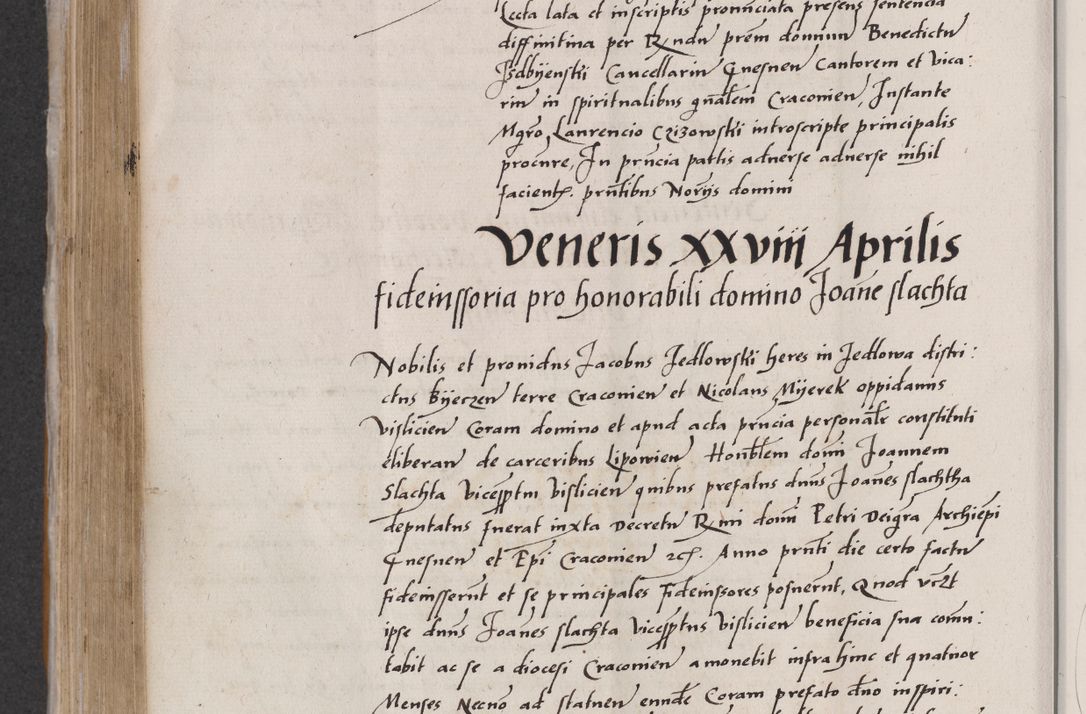 Lecta lata et inscriptis pronuciata presens sententia
diffinitina per Rndu prem domnun Benedictu
Jzdbyenski Cancellariu Gnesnen Cantorem et vica:
riu in spiritualibus gnalem Craconien, Instante
Mgro Laurencio Czizowski introscripte principalis
procure, In prncia partis aduerse aduerse nihil
facient. prntibus Noryis domini
Veneris XXVIII Aprilis
fideiussoria pro honorabili domino Joane slachta
Nobilis et prouidus Jacobus Jedlowski heres in Jedlowa distri:
ctus Byeczen terre Craconien et Nicolaus Myerek oppidanus
Vislicien Coram domino et apud acta prncia personalr constituti
eliberan de carceribus Lipowien Honblem domi Joannem
Slachta Viceptm Vislicien quibus prefatus dnus Joanes slachtha
deputatus fuerat iuxta Decretu Rmi domi Petri Dei gra Archiepi
Gnesnen et Epi Craconien 2c. Anno prnti die certo factu
fideiusserunt et se principales fideiussores posuernt, Quod vt
ipse dnus Joanes slachta Viceptus Vislicien beneficia sua comu:
tabit ac se a diocesi Craconien amonebit infra hinc et quatuor
Menses Necno ad statuen eunde Coram prefato dno inspiri: